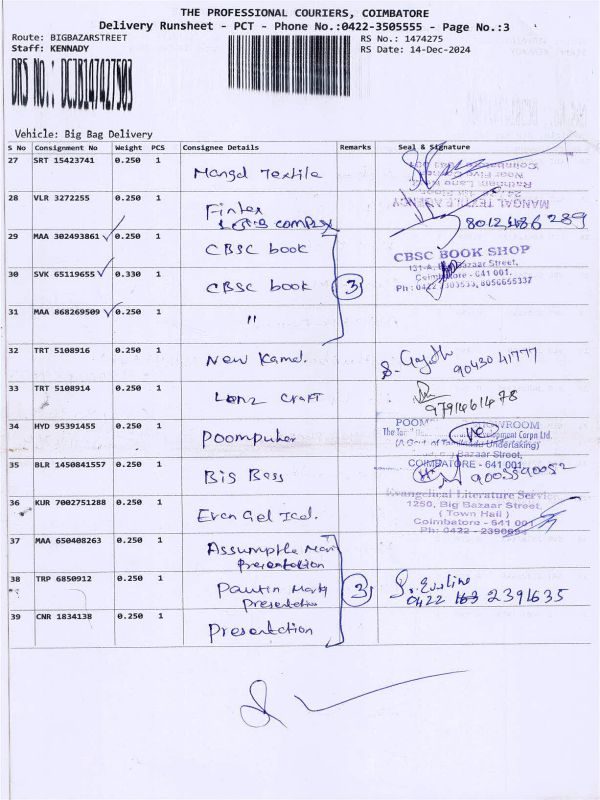 THE PROFESSIONAL COURIERS, COIMBATORE
Delivery Runsheet - PCT - Phone No.:0422-3505555 - Page No.:3
Route: BIGBAZARSTREET
RS No.: 1474275
Staff: KENNADY
RS Date: 14-Dec-2024
DRS NO.: DCJB147427503
Vehicle: Big Bag Delivery
S No Consignment No Weight PCS Consignee Details Remarks Seal & Signature
27 SRT 15423741 0.250 1 Mangal Textile
MANGAL TEXTILE AGENCY
28 VLR 3272255 0.250 1 Fintex
8012486289
29 MAA 302493861 0.250 1 CBSC book
CBSC BOOK SHOP
131-A, Big Bazaar Street,
Coimbatore - 641 001.
30 SVK 65119655 0.330 1 CBSC book 3
Ph : 0422 - 2303533, 8056655337
31 MAA 868269509 0.250 1 "
32 TRT 5108916 0.250 1 New Kamal.
9043041777
33 TRT 5108914 0.250 1 Lenz craft
9791461478
34 HYD 95391455 0.250 1 Poompuhar
POOM SHOWROOM
(A Govt of Tamilnadu Undertaking)
Bazaar Street,
COIMBATORE - 641 001
35 BLR 1450841557 0.250 1 Big Boss
9003590052
36 KUR 7002751288 0.250 1 Evan Gel Ical.
Evangelical Literature Service
1250, Big Bazaar Street,
( Town Hall )
Coimbatore - 641 001
Ph: 0422 -
37 MAA 650408263 0.250 1
presentation
38 TRP 6850912 0.250 1
presentation 3
0422 2391635
39 CNR 1834138 0.250 1 presentation